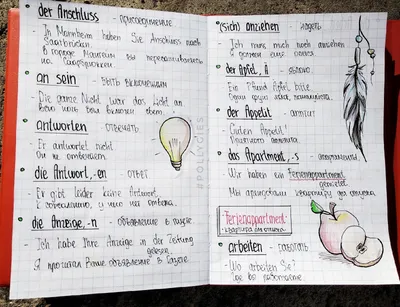 der Anschluss - присоединение
- In Mannheim haben Sie Anschluss nach
Saarbrücken.
В городе Маннгейм Вы пересаживаетесь
на Саарбрюккен.
an sein - быть включенным
- Die ganze Nacht war das Licht an
antworten - отвечать
- Er antwortet nicht.
Он не отвечает.
die Antwort, -en - ответ
- Er gibt leider keine Antwort.
К сожалению, у него нет ответа.
die Anzeige, -n - объявление в газете
- Ich habe Ihre Anzeige in der Zeitung
gelesen.
Я прочитал Ваше объявление в газете.
#POLLYGIES
(sich) anziehen - надеть
- Ich muss mich noch anziehen
Я должен еще
der Apfel, Ä - яблоко
- Ein Pfund Äpfel bitte
Один фунт яблок, пожалуйста.
der Appetit - аппетит
- Guten Appetit!
Приятного аппетита!
das Apartment, -s - апартаменты
- Wir haben ein Ferienappartment
gemietet.
Мы арендовали квартиру для отпуска
Ferienappartment -
квартира для отпуска
arbeiten - работать
- Wo arbeiten Sie?
Где Вы работаете